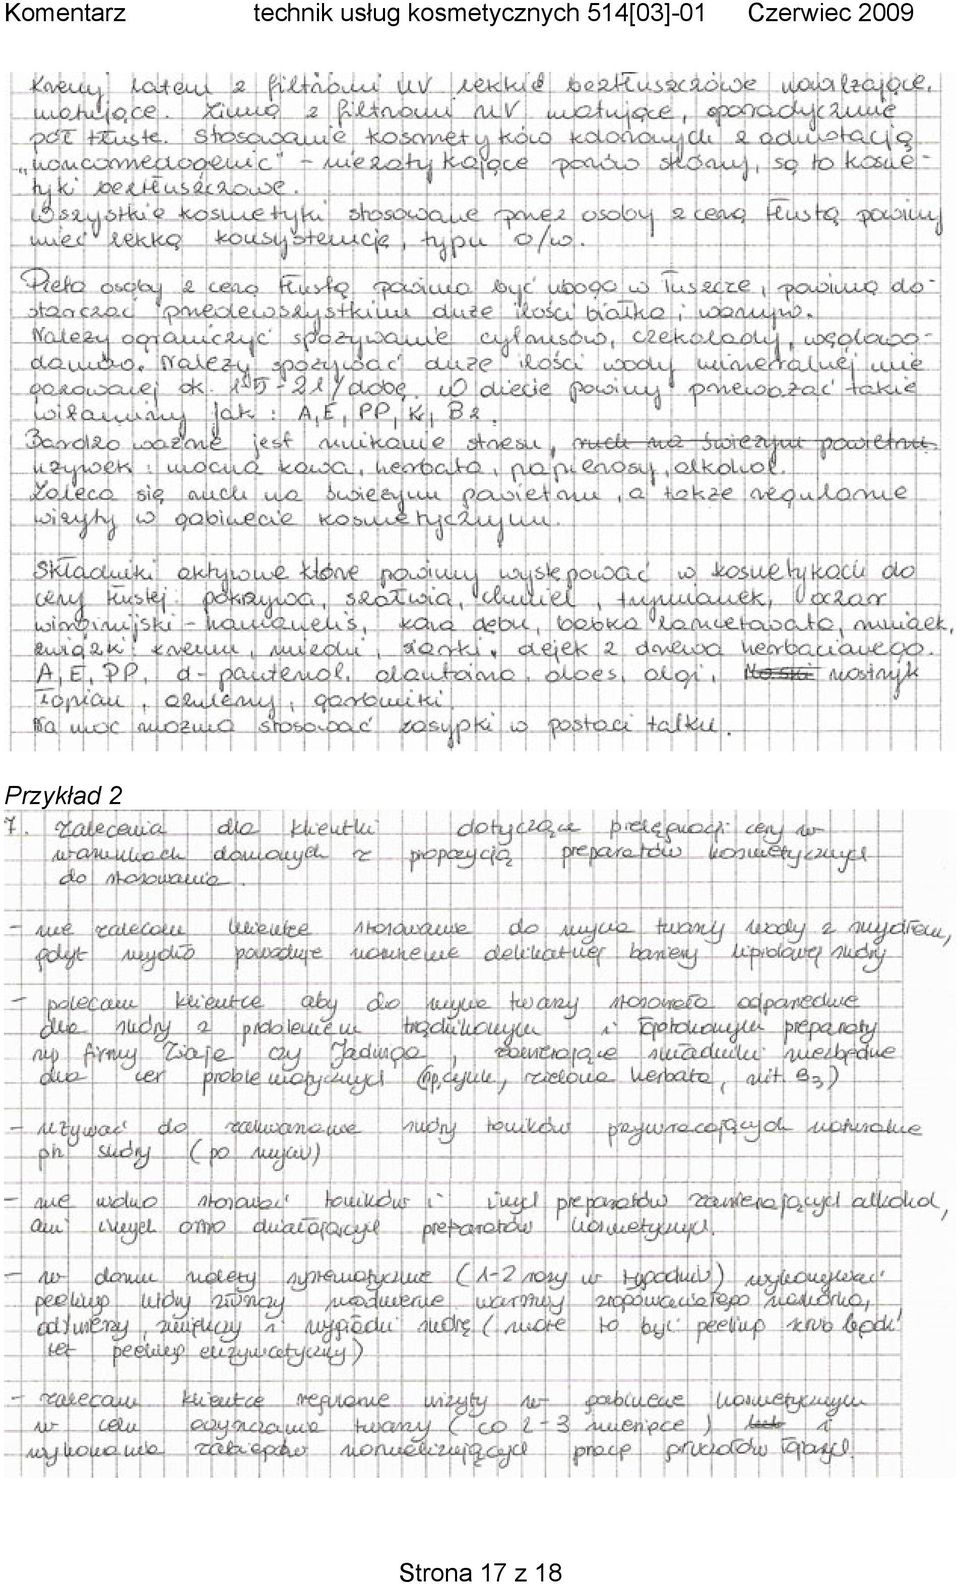 Komentarz technik usług kosmetycznych 514[03]-01 Czerwiec 2009
Kremy latem z filtrami UV lekkie beztłuszczowe nawilżające,
matujące. Zimą z filtrami UV matujące, sporadycznie
pół tłuste. Stosowanie kosmetyków kolorowych z adnotacją
„noncomedogenic" – niezatykające porów skóry, są to kosme-
tyki beztłuszczowe.
Wszystkie kosmetyki stosowane przez osoby z cerą tłustą powinny
mieć lekką konsystencję, typu o/w.
Dieta osoby z cerą tłustą powinna być uboga w tłuszcze, powinna do-
starczać przedewszystkim duże ilości białka i warzyw.
Należy ograniczyć spożywanie cytrusów, czekolady, węglowo-
danów. Należy spożywać duże ilości wody mineralnej nie
gazowanej ok. 1,5-2l/dobę. W diecie powinny przeważać takie
witaminy jak: A, E, PP, K, B2.
Bardzo ważne jest unikanie stresu, ruch na świeżym powietrzu.
używek: mocna kawa, herbata, papierosy, alkohol.
Zaleca się ruch na świeżym powietrzu, a także regularne
wizyty w gabinecie kosmetycznym.
Składniki aktywne które powinny występować w kosmetykach do
cery tłustej: pokrzywa, szałwia, chmiel, tymianek, oczar
wirginijski – hamamelis, kora dębu, babka lancetowata, rumianek,
związki: kremu, miedzi, siarki, olejek z drzewa herbacianego.
A, E, PP, d-pantenol, alantoina, aloes, algi, nostrzyk
łopian, azuleny, garbniki.
Na noc można stosować zasypki w postaci talku.
Przykład 2
7. Zalecenia dla klientki dotyczące pielęgnacji cery w
warunkach domowych z propozycją preparatów kosmetycznych
do stosowania.
- nie zalecam klientce stosowanie do mycia twarzy wody z mydłem,
gdyż mydło powoduje naruszenie delikatnej bariery lipidowej skóry
- polecam klientce aby do mycia twarzy stosowała odpowiednie
dla skóry z problemem trądzikowym i łojotokowym preparaty
np firmy Ziaja czy Jadwiga, zawierające składniki niezbędne
dla cer problematycznych (np. cynk, zielona herbata, wit. B3)
- używać do zakwaszanie skóry toników przywracających naturalne
ph skóry (po myciu)
- nie wolno stosować toników i innych preparatów zawierających alkohol,
ani innych ostro działających preparatów kosmetycznych.
- w domu należy systematycznie (1-2 razy w tygodniu) wykonywać
peeling który złuszczy nadmierne warstwy zrogowaciałego naskórka,
odświeży, zmiękczy i wygładzi skórę (może to być peeling scrub bądź
też peeling enzymatyczny)
- zalecam klientce regularne wizyty w gabinecie kosmetycznym
w celu oczyszczania twarzy (co 2-3 miesiące) i
wykonania zabiegów normalizujących pracę gruczołów łojowych.
Strona 17 z 18